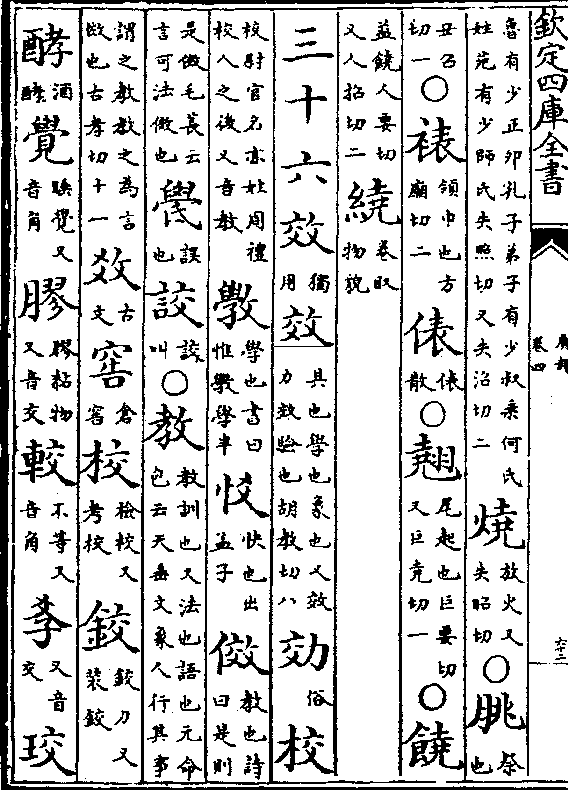 欽定四庫全書 廣韻 卷四 六十三
魯有少正卯孔子弟子有少叔乗何氏姓苑有少師氏失照切又失沼切二 燒 放火又失昭切 ○ 朓 祭也
丑召切一 ○ 裱 領巾也方廟切二 俵 俵散 ○ 翹 尾起也巨要切又巨堯切一 ○ 饒
益饒人要切又人招切二 繞 卷取物貌
三十六效 獨用 效 具也學也象也又效力效驗也胡教切八 効 俗 校
校尉官名亦姓周禮校人之後又音教 斆 學也書曰惟斆學半 恔 快也出孟子 傚 教也詩曰是則
是傚毛萇云言可法傚也 誤也 詨 詨叫 ○ 教 教訓也又法也語也元命包云天垂文象人行其事
謂之教教之為言傚也古孝切十一 古文 窖 倉窖 校 檢校又考校 鉸 鉸刀又裝鉸
酵 酒酵 覺 睡覺又音角 膠 膠粘物又音交 較 不等又音角 又音交 珓